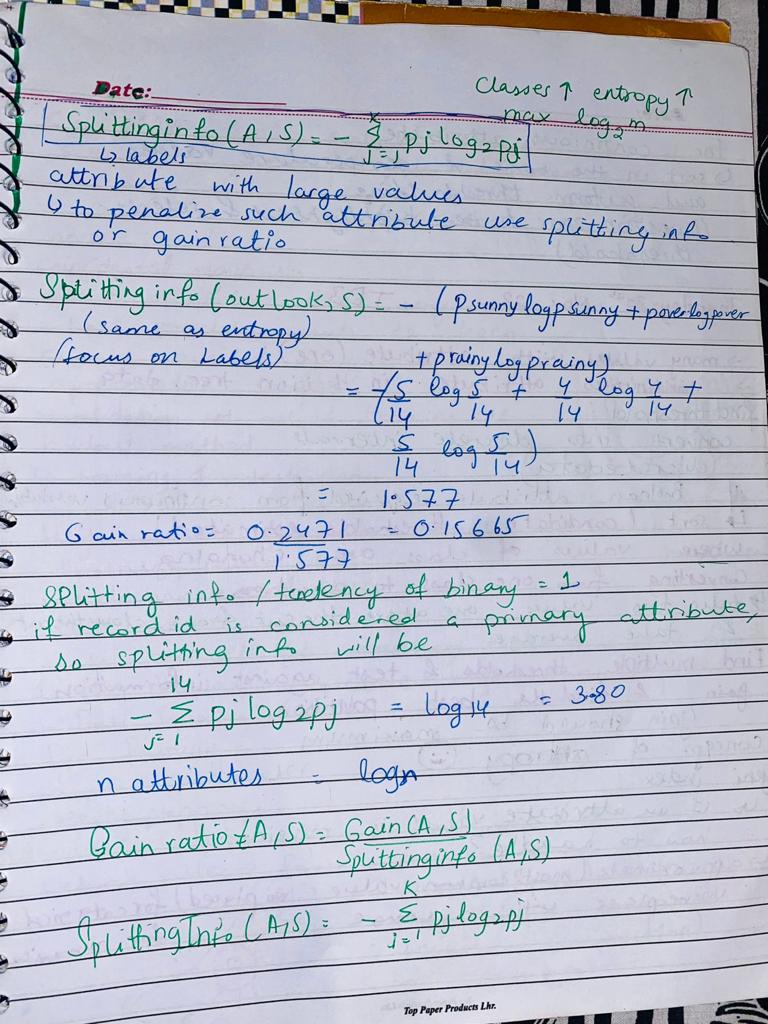 Classes ↑ entropy ↑
max log₂m
Date:
Splittinginfo(A,S) = - Σ_{j=1}^{K} pj log2pj
↳ labels
attribute with large values
↳ to penalize such attribute use splitting info
or gain ratio
Splitting info (outlook, S) = - (psunny logpsunny + pover logpover
(same as entropy)
(focus on Labels)
+ prainy logprainy)
= -(5/14 log 5/14 + 4/14 log 4/14 +
5/14 log 5/14)
= 1.577
Gain ratio = 0.2471/1.577 = 0.15665
Splitting info / tendency of binary = 1
if record id is considered a primary attribute,
so splitting info will be
- Σ_{j=1}^{14} pj log2pj = log14 = 3.80
n attributes = logn
Gain ratio (A,S) = Gain(A,S)/Splittinginfo (A,S)
SplittingInfo (A,S) = - Σ_{j=1}^{K} pj log2pj
Top Paper Products Lhr.